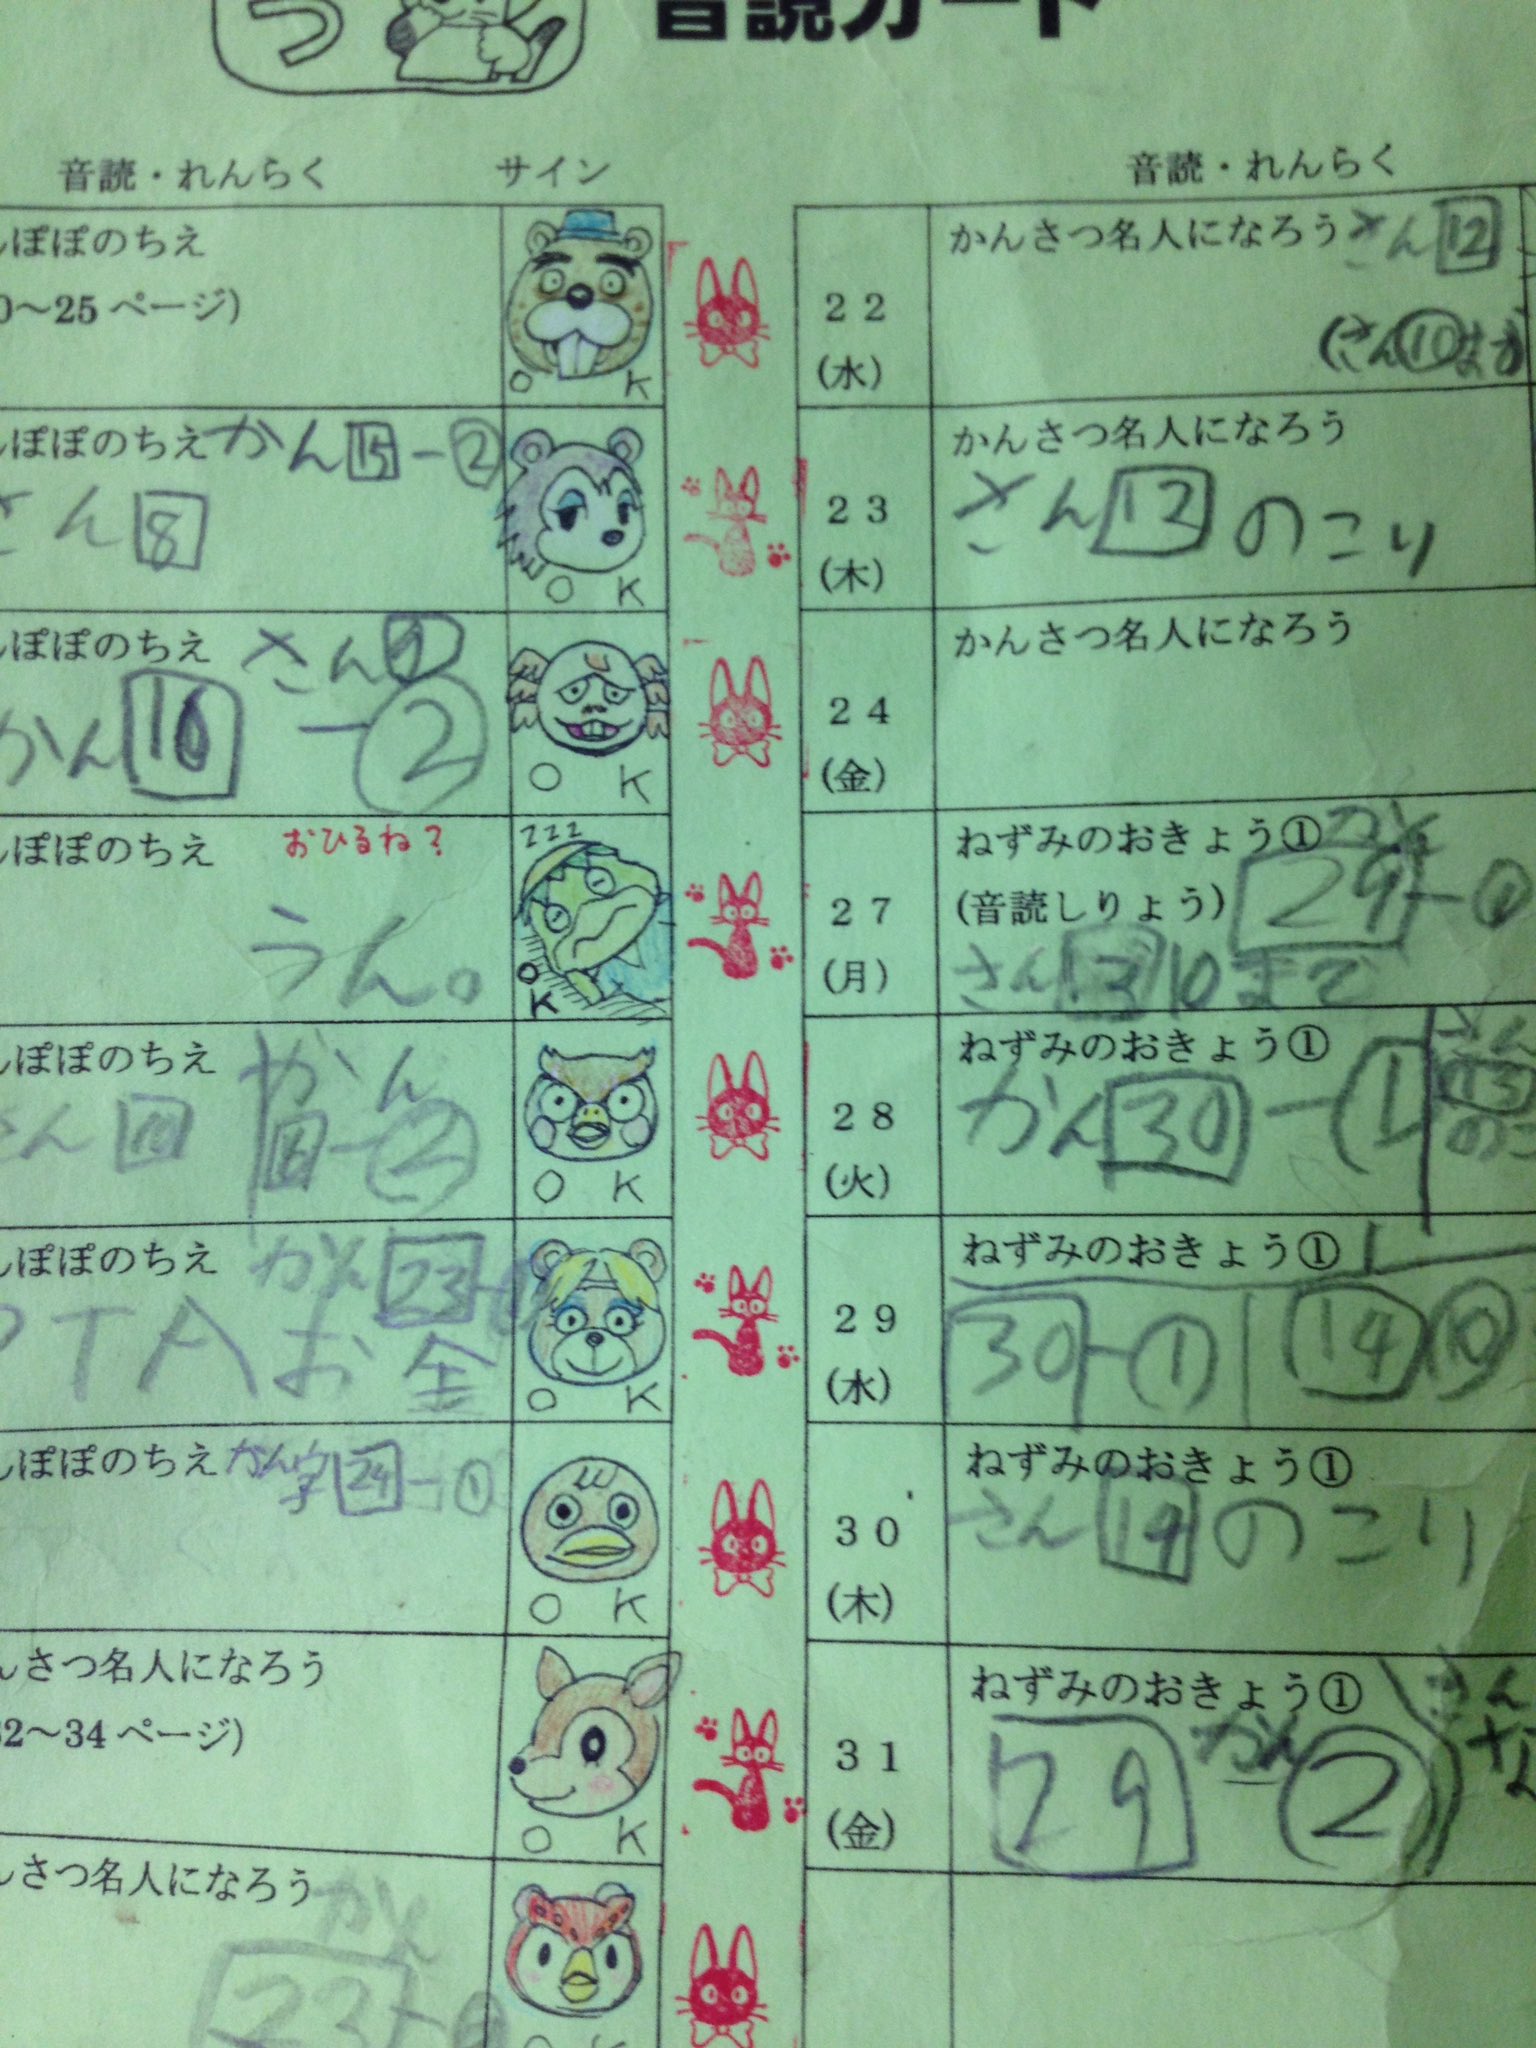 つ
音読カード
音読・れんらく サイン
ぽぽのちえ
～25ページ)
OK
ぽぽのちえ かん15-②
さん8
OK
ぽぽのちえ さん
かん16-②
OK
ぽぽのちえ おひるね?
うん。
zzz
OK
ぽぽのちえ かん
さん -②
OK
ぽぽのちえ かん23
PTAお金
OK
ぽぽのちえ かん字24-①
OK
んさつ名人になろう
32～34ページ)
OK
んさつ名人になろう かん
23-
音読・れんらく
22
(水)
かんさつ名人になろう さん12
(さん⑩まで
23
(木)
かんさつ名人になろう
さん12のこり
24
(金)
かんさつ名人になろう
27
(月)
ねずみのおきょう① かん
(音読しりょう) 29-①
さん13 10まで
28
(火)
ねずみのおきょう① さん
かん30-① 13
のこ
29
(水)
ねずみのおきょう①
30-① 14⑩
30
(木)
ねずみのおきょう①
さん14のこり
31
(金)
ねずみのおきょう① さん
29 かん② なん